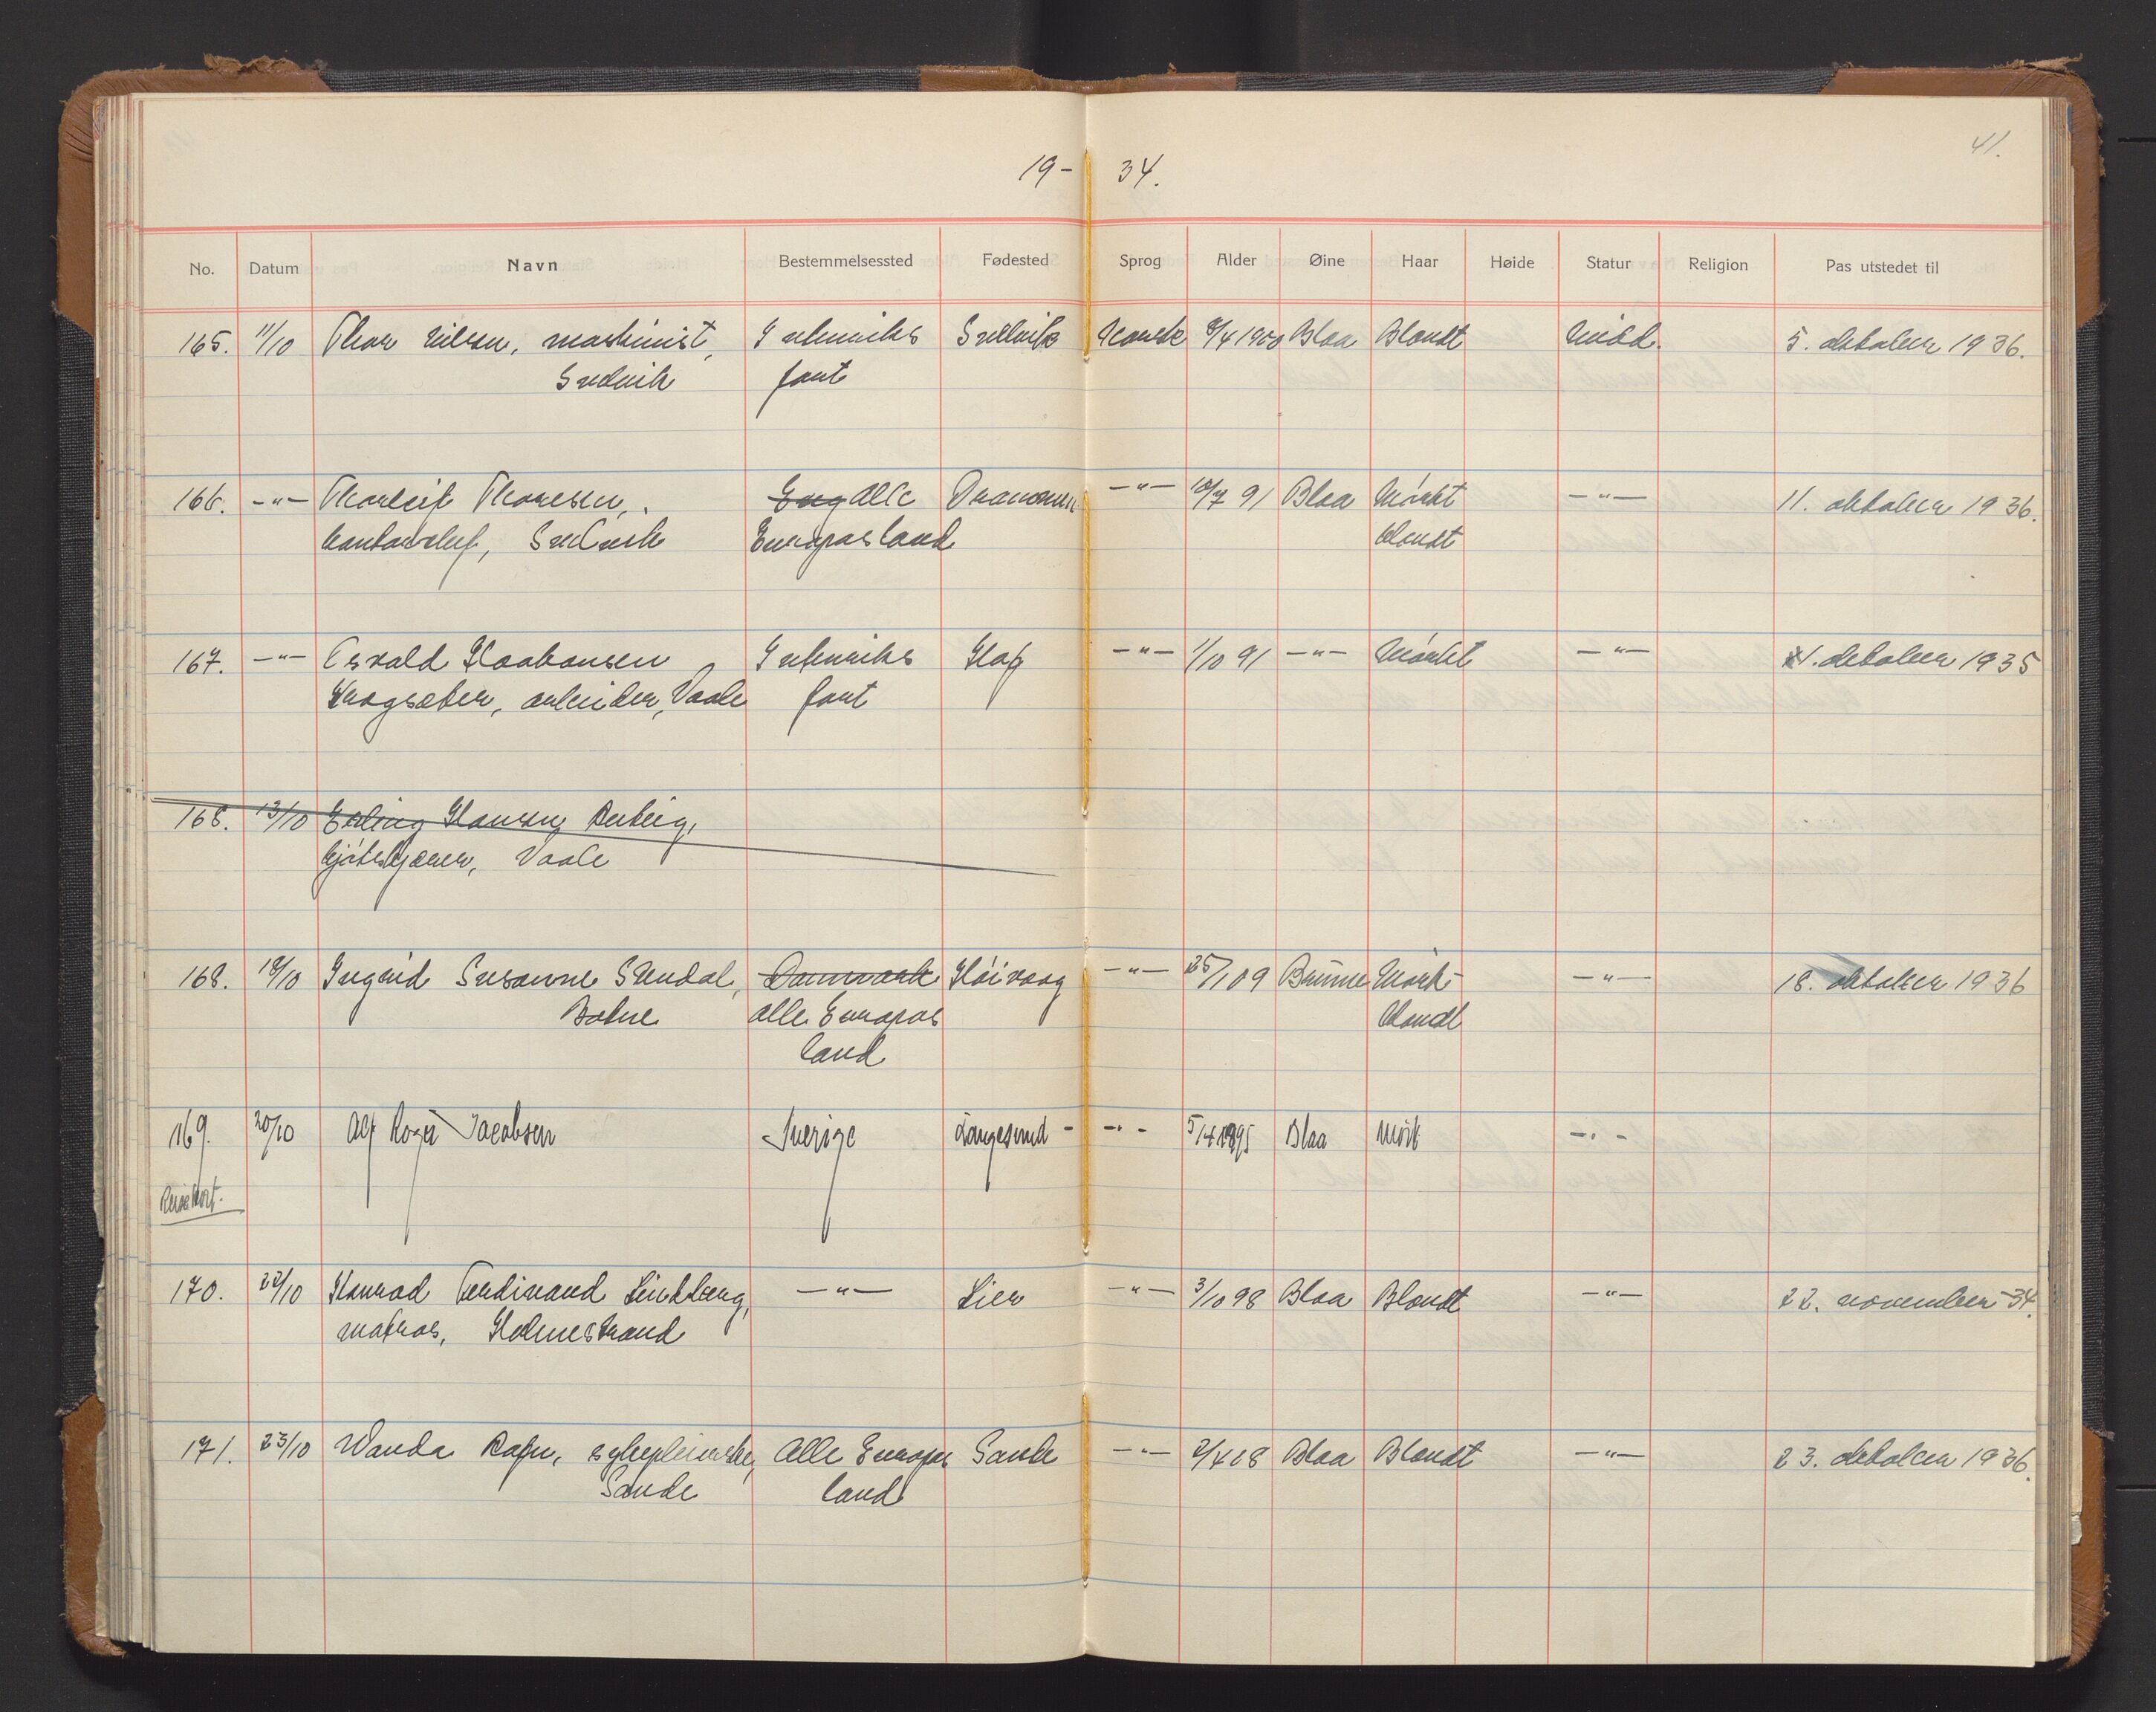 41.
19- 34.
No. Datum Navn Bestemmelsessted Fødested Sprog Alder Øine Haar Høide Statur Religion Pas utstedet til
165. 11/10 Thor Nilsen, maskinist, Utenriks Svelvik Norsk 8/4 1900 Blaa Blondt Midd. 5. oktober 1936.
Svelvik fart
166. -"- Thorleif Thoresen, Eng Alle Drammen -"- 10/7 91 Blaa Mörkt -"- 11. oktober 1936.
kontorchef, Svelvik Europas land blondt
167. -"- Osvald Haakonsen Utenriks Hof -"- 1/10 91 -"- Mörkt -"- 11. oktober 1935
Krogsæter, arbeider, Vaale fart
168. 13/10 Erling Hansen Berberg,
kjötskjærer, Vaale
168. 18/10 Ingrid Susanne Stendal, Danmark Höivaag -"- 25/1 09 Brune Mörk- -"- 18. oktober 1936
Botne alle Europas blondt
land
169. 20/10 Alf Roger Jacobsen Sverige Langesund -"- 5/4 1895 Blaa Mörk -"-
Reisekort.
170. 22/10 Konrad Ferdinand Lindberg, -"- Lier -"- 3/10 98 Blaa Blondt -"- 22. november -34.
matros, Holmestrand
171. 23/10 Wanda Rafn, sykepleierske, Alle Europas Sande -"- 2/4 08 Blaa Blondt -"- 23. oktober 1936.
Sande land